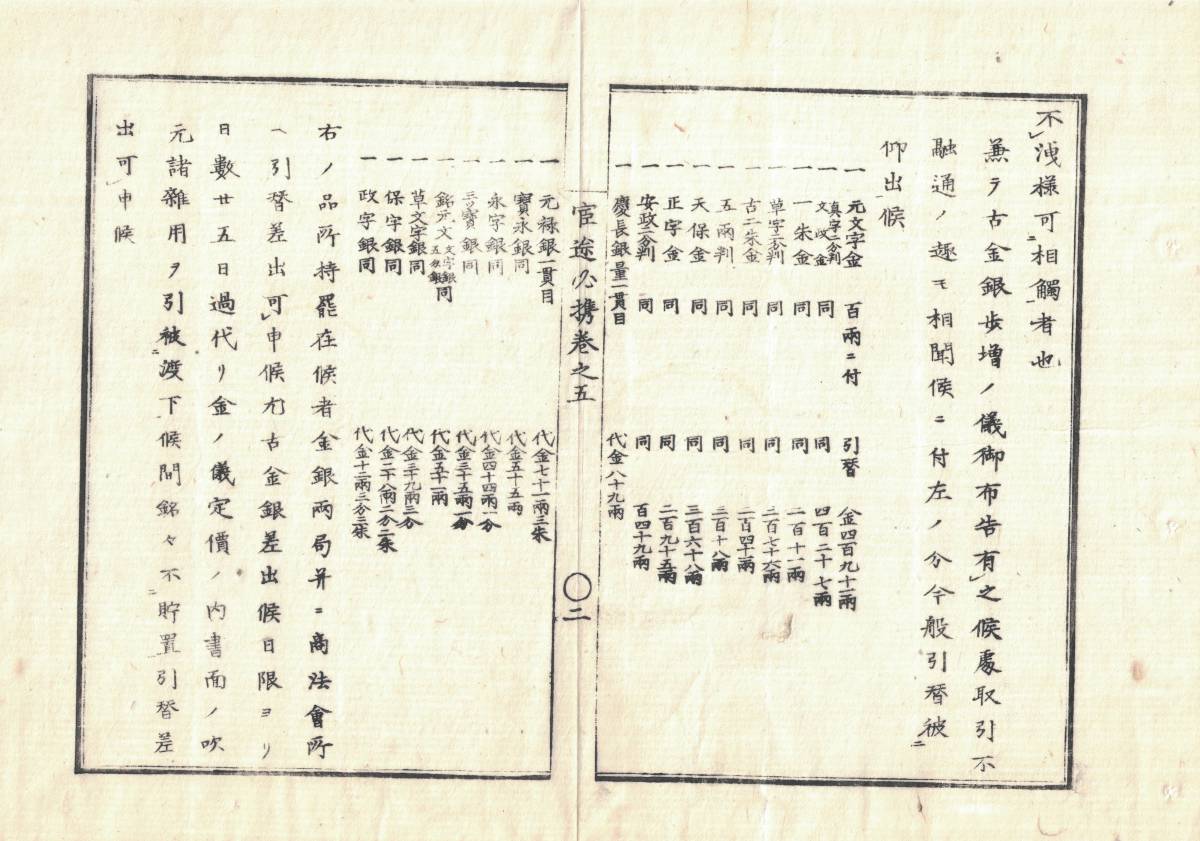 不洩様可ニ相觸者也
兼テ古金銀歩増ノ儀御布告有之候處取引不
融通ノ趣モ相聞候ニ付左ノ分今般引替被ニ
仰出候
一 元文字金 百兩ニ付 引替 金四百九十一兩
一 真字二分判 文政金 同 同 四百二十七兩
一 一朱金 同 同 二百十一兩
一 草字二分判 同 同 二百七十六兩
一 古二朱金 同 同 二百四十二兩
一 五兩判 同 同 三百十八兩
一 天保金 同 同 三百六十八兩
一 正字金 同 同 二百九十五兩
一 安政二分判 同 同 百四十九兩
一 慶長銀量一貫目 代金八十九兩
官途必携卷之五 〇二
一 元禄銀一貫目 代金七十一兩三朱
一 寶永銀同 代金五十五兩
一 永字銀同 代金四十四兩一分
一 三ツ寶銀同 代金三十五兩一分
一 銘元文 文字銀 五匁銀 同 代金五十一兩
一 草文字銀同 代金三十九兩三分
一 保字銀同 代金二十八兩二分二朱
一 政字銀同 代金十二兩三分三朱
右ノ品所持罷在候者金銀兩局并ニ商法會所
ヘ引替差出可申候尤古金銀差出候日限ヨリ
日數廿五日過代リ金ノ儀定價ノ内書面ノ吹
元諸雜用ヲ引被ニ渡下候間銘々不ニ貯置引替差
出可申候